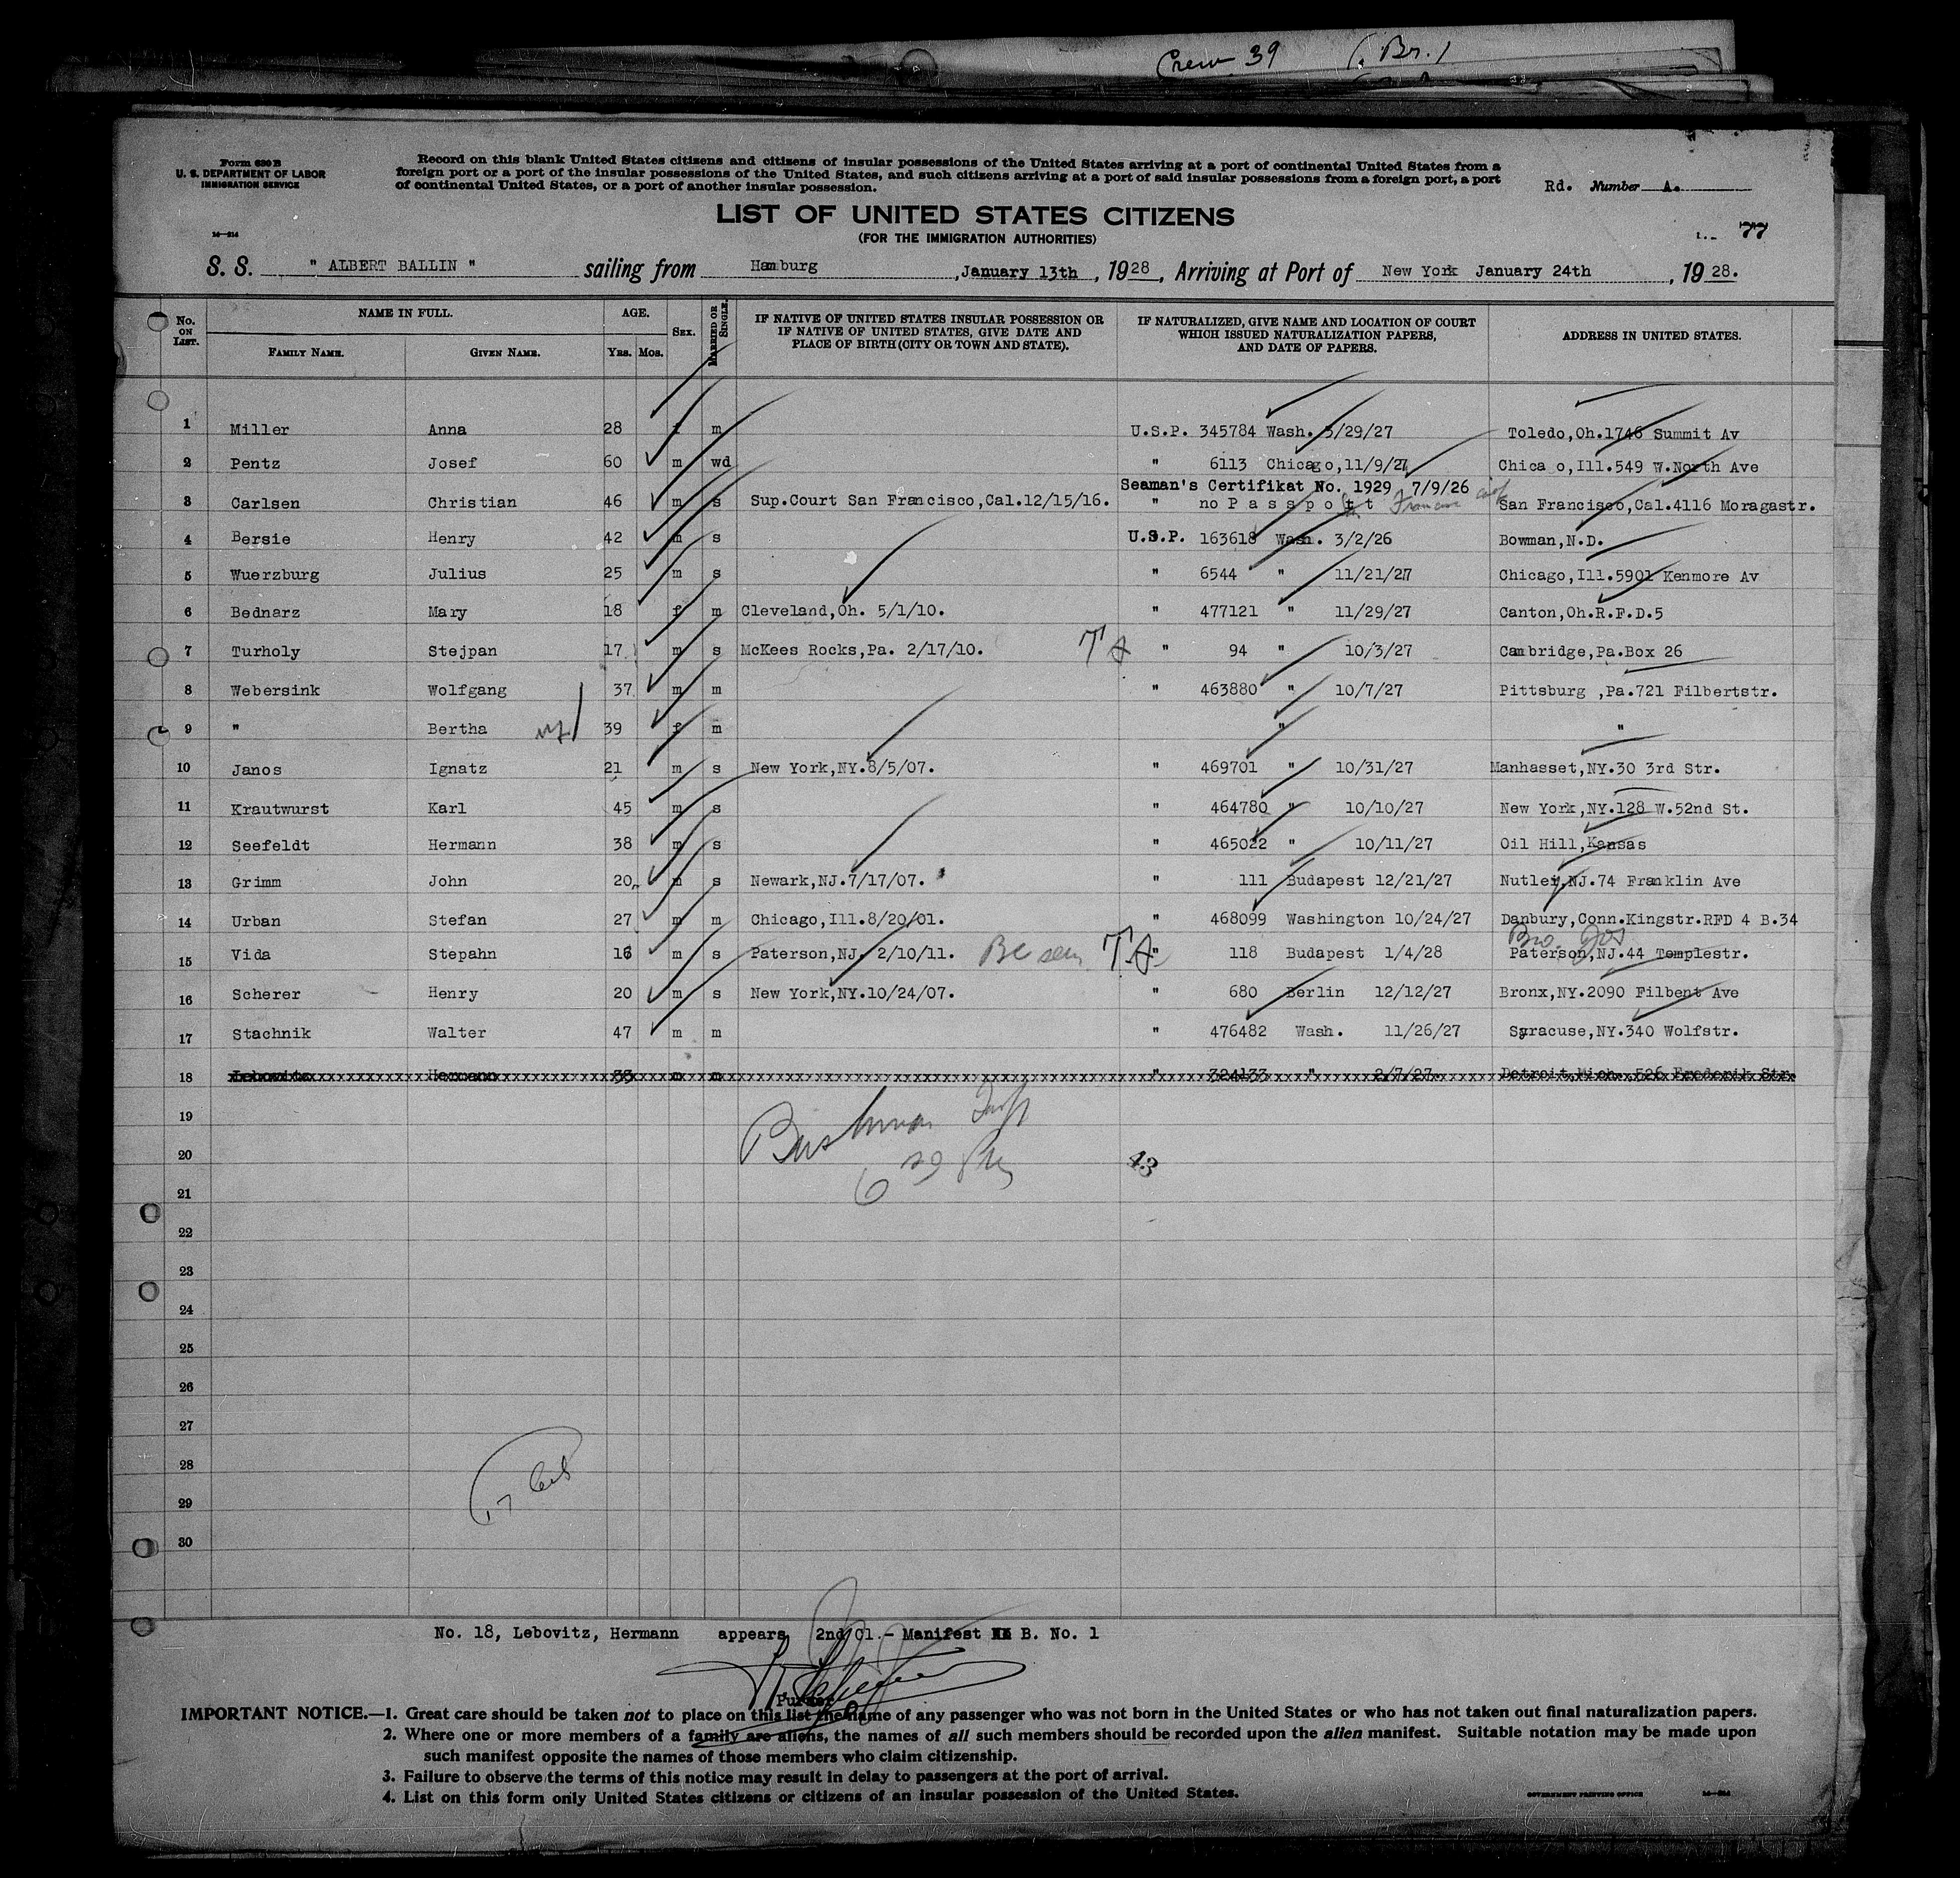 Crew 39 (Br.)
Form 630 B
U. S. DEPARTMENT OF LABOR
IMMIGRATION SERVICE
Record on this blank United States citizens and citizens of insular possessions of the United States arriving at a port of continental United States from a
foreign port or a port of the insular possessions of the United States, and such citizens arriving at a port of said insular possessions from a foreign port, a port
of continental United States, or a port of another insular possession.
Rd. Number A.
LIST OF UNITED STATES CITIZENS
(FOR THE IMMIGRATION AUTHORITIES)
14—314
77
S. S. " ALBERT BALLIN " sailing from Hamburg , January 13th , 1928 , Arriving at Port of New York January 24th , 1928.
No. ON LIST. NAME IN FULL. AGE. SEX. MARRIED OR SINGLE. IF NATIVE OF UNITED STATES INSULAR POSSESSION OR IF NATIVE OF UNITED STATES, GIVE DATE AND PLACE OF BIRTH (CITY OR TOWN AND STATE). IF NATURALIZED, GIVE NAME AND LOCATION OF COURT WHICH ISSUED NATURALIZATION PAPERS, AND DATE OF PAPERS. ADDRESS IN UNITED STATES.
FAMILY NAME. GIVEN NAME. YRS. MOS.
1 Miller Anna 28 f m U.S.P. 345784 Wash. 3/29/27 Toledo,Oh.1746 Summit Av
2 Pentz Josef 60 m wd " 6113 Chicago,11/9/27 Chica o,Ill.549 W.North Ave
Seaman's Certifikat No. 1929 7/9/26
3 Carlsen Christian 46 m s Sup.Court San Francisco,Cal.12/15/16. " no P a s s p o r t San Francisco,Cal.4116 Moragastr.
4 Bersie Henry 42 m s U.S.P. 163618 Wash. 3/2/26 Bowman,N.D.
5 Wuerzburg Julius 25 m s " 6544 " 11/21/27 Chicago,Ill.5901 Kenmore Av
6 Bednarz Mary 18 f m Cleveland,Oh. 5/1/10. " 477121 " 11/29/27 Canton,Oh.R.F.D.5
7 Turholy Stejpan 17 m s McKees Rocks,Pa. 2/17/10. " 94 " 10/3/27 Cambridge,Pa.Box 26
8 Webersink Wolfgang 37 m m " 463880 " 10/7/27 Pittsburg ,Pa.721 Filbertstr.
9 " Bertha 39 f m " "
10 Janos Ignatz 21 m s New York,NY.8/5/07. " 469701 " 10/31/27 Manhasset,NY.30 3rd Str.
11 Krautwurst Karl 45 m s " 464780 " 10/10/27 New York,NY.128 W.52nd St.
12 Seefeldt Hermann 38 m s " 465022 " 10/11/27 Oil Hill,Kansas
13 Grimm John 20 m s Newark,NJ.7/17/07. " 111 Budapest 12/21/27 Nutley,NJ.74 Franklin Ave
14 Urban Stefan 27 m m Chicago,Ill.8/20/01. " 468099 Washington 10/24/27 Danbury,Conn.Kingstr.RFD 4 B.34
Bro. Jos
15 Vida Stepahn 16 m s Paterson,NJ. 2/10/11. " 118 Budapest 1/4/28 Paterson,NJ.44 Templestr.
16 Scherer Henry 20 m s New York,NY.10/24/07. " 680 Berlin 12/12/27 Bronx,NY.2090 Filbent Ave
17 Stachnik Walter 47 m m " 476482 Wash. 11/26/27 Syracuse,NY.340 Wolfstr.
18 Lebovitz Hermann 33 m m " 324133 " 2/7/27. Detroit,Mich. 526 Frederik Str.
19
20 43
21
22
23
24
25
26
27
28
29
30
No. 18, Lebovitz, Hermann appears 2nd Cl.- Manifest B. No. 1
Purser
IMPORTANT NOTICE.—1. Great care should be taken not to place on this list the name of any passenger who was not born in the United States or who has not taken out final naturalization papers.
2. Where one or more members of a family are aliens, the names of all such members should be recorded upon the alien manifest. Suitable notation may be made upon
such manifest opposite the names of those members who claim citizenship.
3. Failure to observe the terms of this notice may result in delay to passengers at the port of arrival.
4. List on this form only United States citizens or citizens of an insular possession of the United States.
GOVERNMENT PRINTING OFFICE 14—314